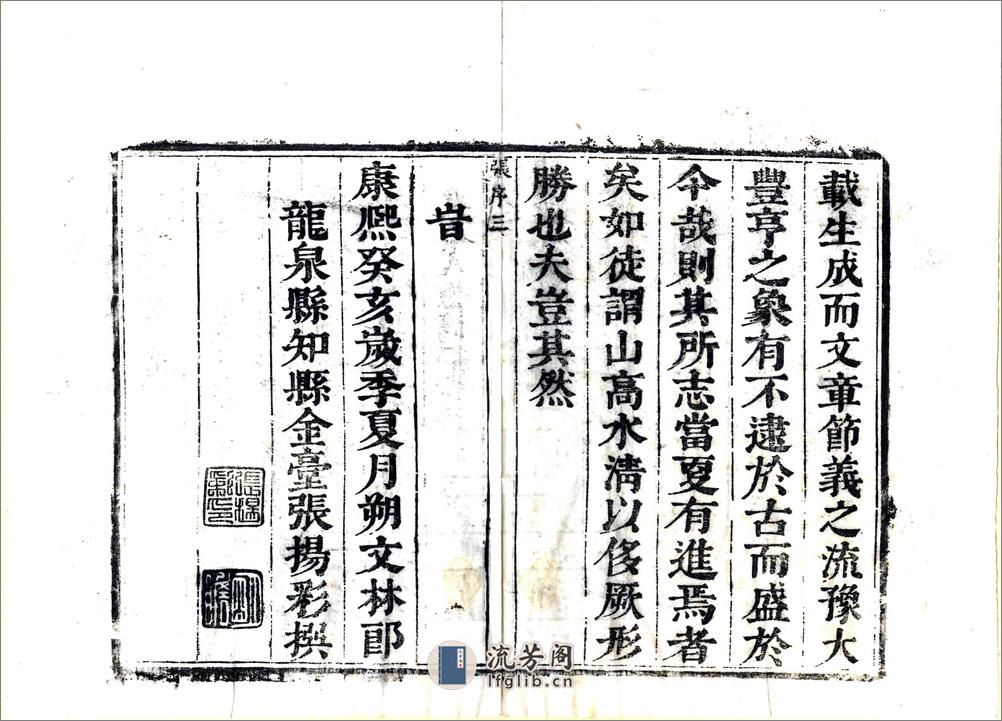 載生成而文章節義之流豫大
豐亨之象有不逮於古而盛於
今哉則其所志當夏有進焉者
矣如徒謂山高水淸以侈厥形
勝也夫豈其然
張序三
旹
康熙癸亥歲季夏月朔文林郎
龍泉縣知縣金臺張揚彩撰
流芳阁
lfglib.cn